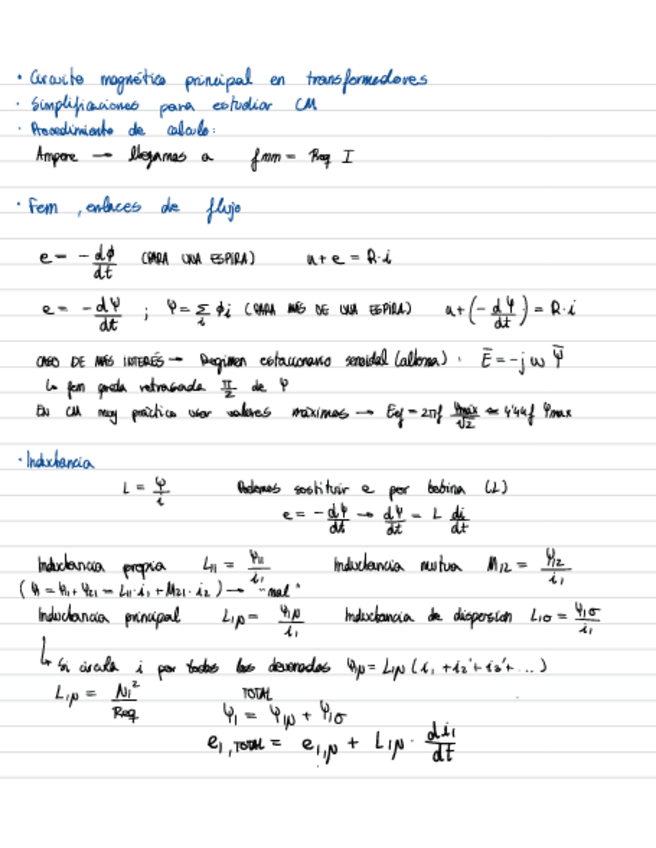 • Circuito magnético principal en transformadores
• Simplificaciones para estudiar CM
• Procedimiento de calculo:
Ampere → llegamos a fmm = Req I
• Fem, enlaces de flujo
e = - dϕ/dt (PARA UNA ESPIRA) u + e = R·i
e = - dΨ/dt ; Ψ = Σ_i ϕi (PARA MÁS DE UNA ESPIRA) u + (- dΨ/dt) = R·i
CASO DE MÁS INTERÉS → Regimen estacionario senoidal (alterna). Ē = -jω Ψ̄
La fem queda retrasada π/2 de Ψ
EN CM muy práctico usar valores máximos → Eef = 2πf Ψmax/√2 ≃ 4'44f Ψmax
• Inductancia
L = Ψ/i Podemos sostituir e por bobina (L)
e = - dΨ/dt → dΨ/dt = L di/dt
Inductancia propia L11 = Ψ11/i1 Inductancia mutua M12 = Ψ12/i1
(Ψ1 = Ψ11 + Ψ21 = L11·i1 + M21·i2) → "mal"
Inductancia principal L1p = Ψ1p/i1 Inductancia de dispersion L1σ = Ψ1σ/i1
↳ Si circula i por todos los devanados Ψ1p = L1p (i1 + i2' + i3' + ...)
L1p = N1²/Req TOTAL
Ψ1 = Ψ1p + Ψ1σ
e1,TOTAL = e1,p + L1p · di1/dt